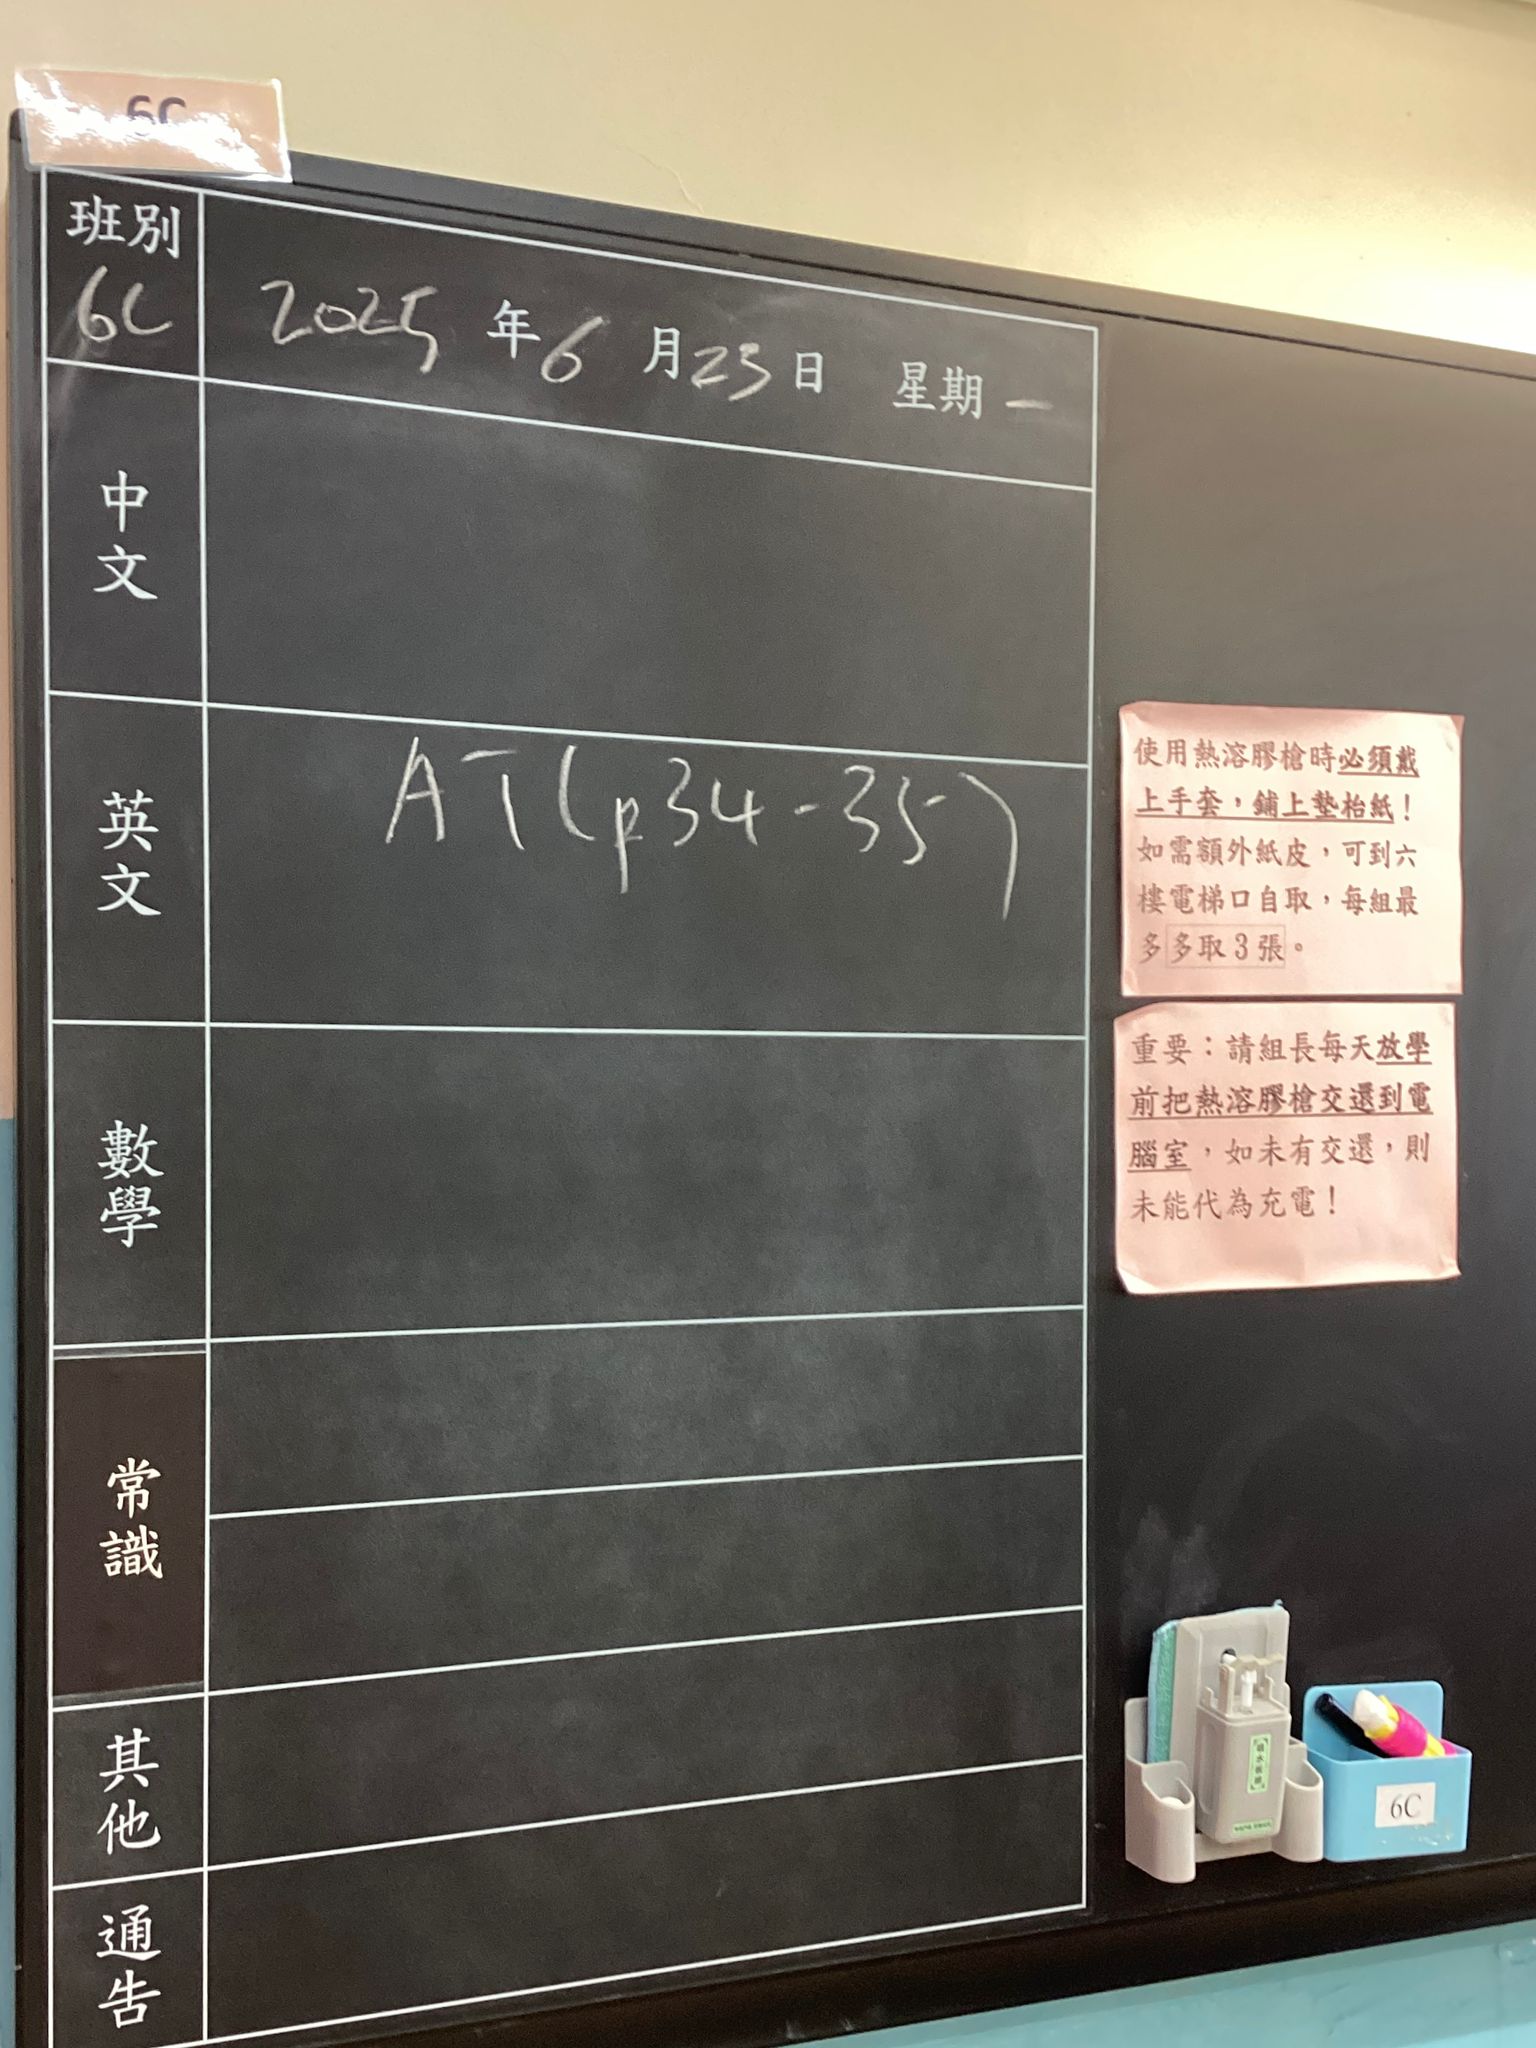 6C
班別
6C
2025 年 6 月 23 日 星期 一
中文
英文
AT (p34-35)
數學
常識
其他
通告
使用熱溶膠槍時必須戴
上手套，鋪上墊枱紙！
如需額外紙皮，可到六
樓電梯口自取，每組最
多多取3張。
重要：請組長每天放學
前把熱溶膠槍交還到電
腦室，如未有交還，則
未能代為充電！
6C